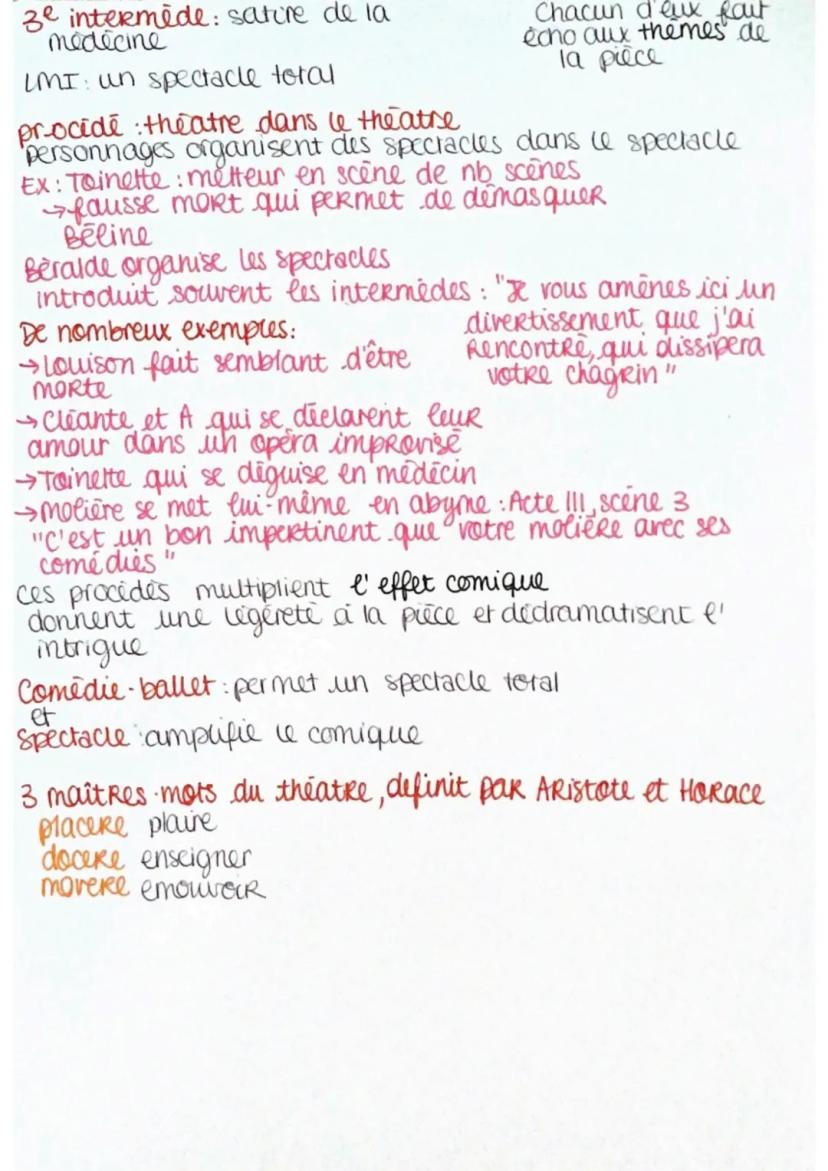 3e intermède: satire de la
médecine
Chacun d'eux fait
écho aux thèmes de
la pièce
LMI: un spectacle total
procidé : théatre dans le théatre
personnages organisent des spectacles dans le spectacle
Ex: Toinette : metteur en scène de nb scènes
→ fausse mort qui permet de démasquer
Béline
Béralde organise les spectacles
introduit souvent les intermèdes : "Je vous amènes ici un
divertissement que j'ai
Rencontré, qui dissipera
votre chagrin"
De nombreux exemples:
→ Louison fait semblant d'être
morte
→ Cléante et A qui se déclarent leur
amour dans un opéra improvisé
→ Toinette qui se déguise en médécin
→ Molière se met lui-même en abyme : Acte III, scène 3
"C'est un bon impertinent que votre molière avec ses
comédies"
ces procédés multiplient l'effet comique
donnent une légéreté à la pièce et dédramatisent l'
intrigue
Comédie-ballet : permet un spectacle total
et
spectacle : amplifie le comique
3 maîtres-mots du théatre, définit par Aristote et Horace
placere plaire
docere enseigner
movere emouvoir